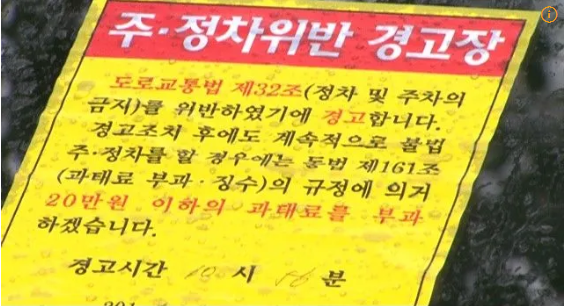 주·정차위반 경고장
도로교통법 제32조(정차 및 주차의
금지)를 위반하였기에 경고합니다.
경고조치 후에도 계속적으로 불법
주·정차를 할 경우에는 동법 제161조
(과태료 부과·징수)의 규정에 의거
20만원 이하의 과태료를 부과
하겠습니다.
경고시간 10 시 56 분
201